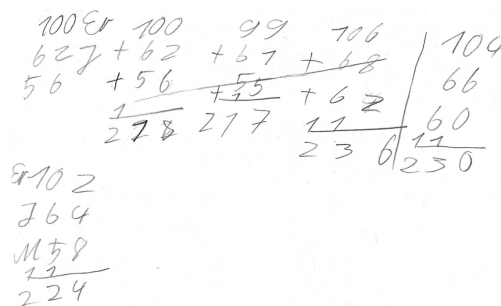 100 Er 100 99 106 104
62 J + 62 + 61 + 68 66
56 + 56 + 55 + 62 60
1 11 11
218 217 236 230
Er 102
J 64
M 58
11
224